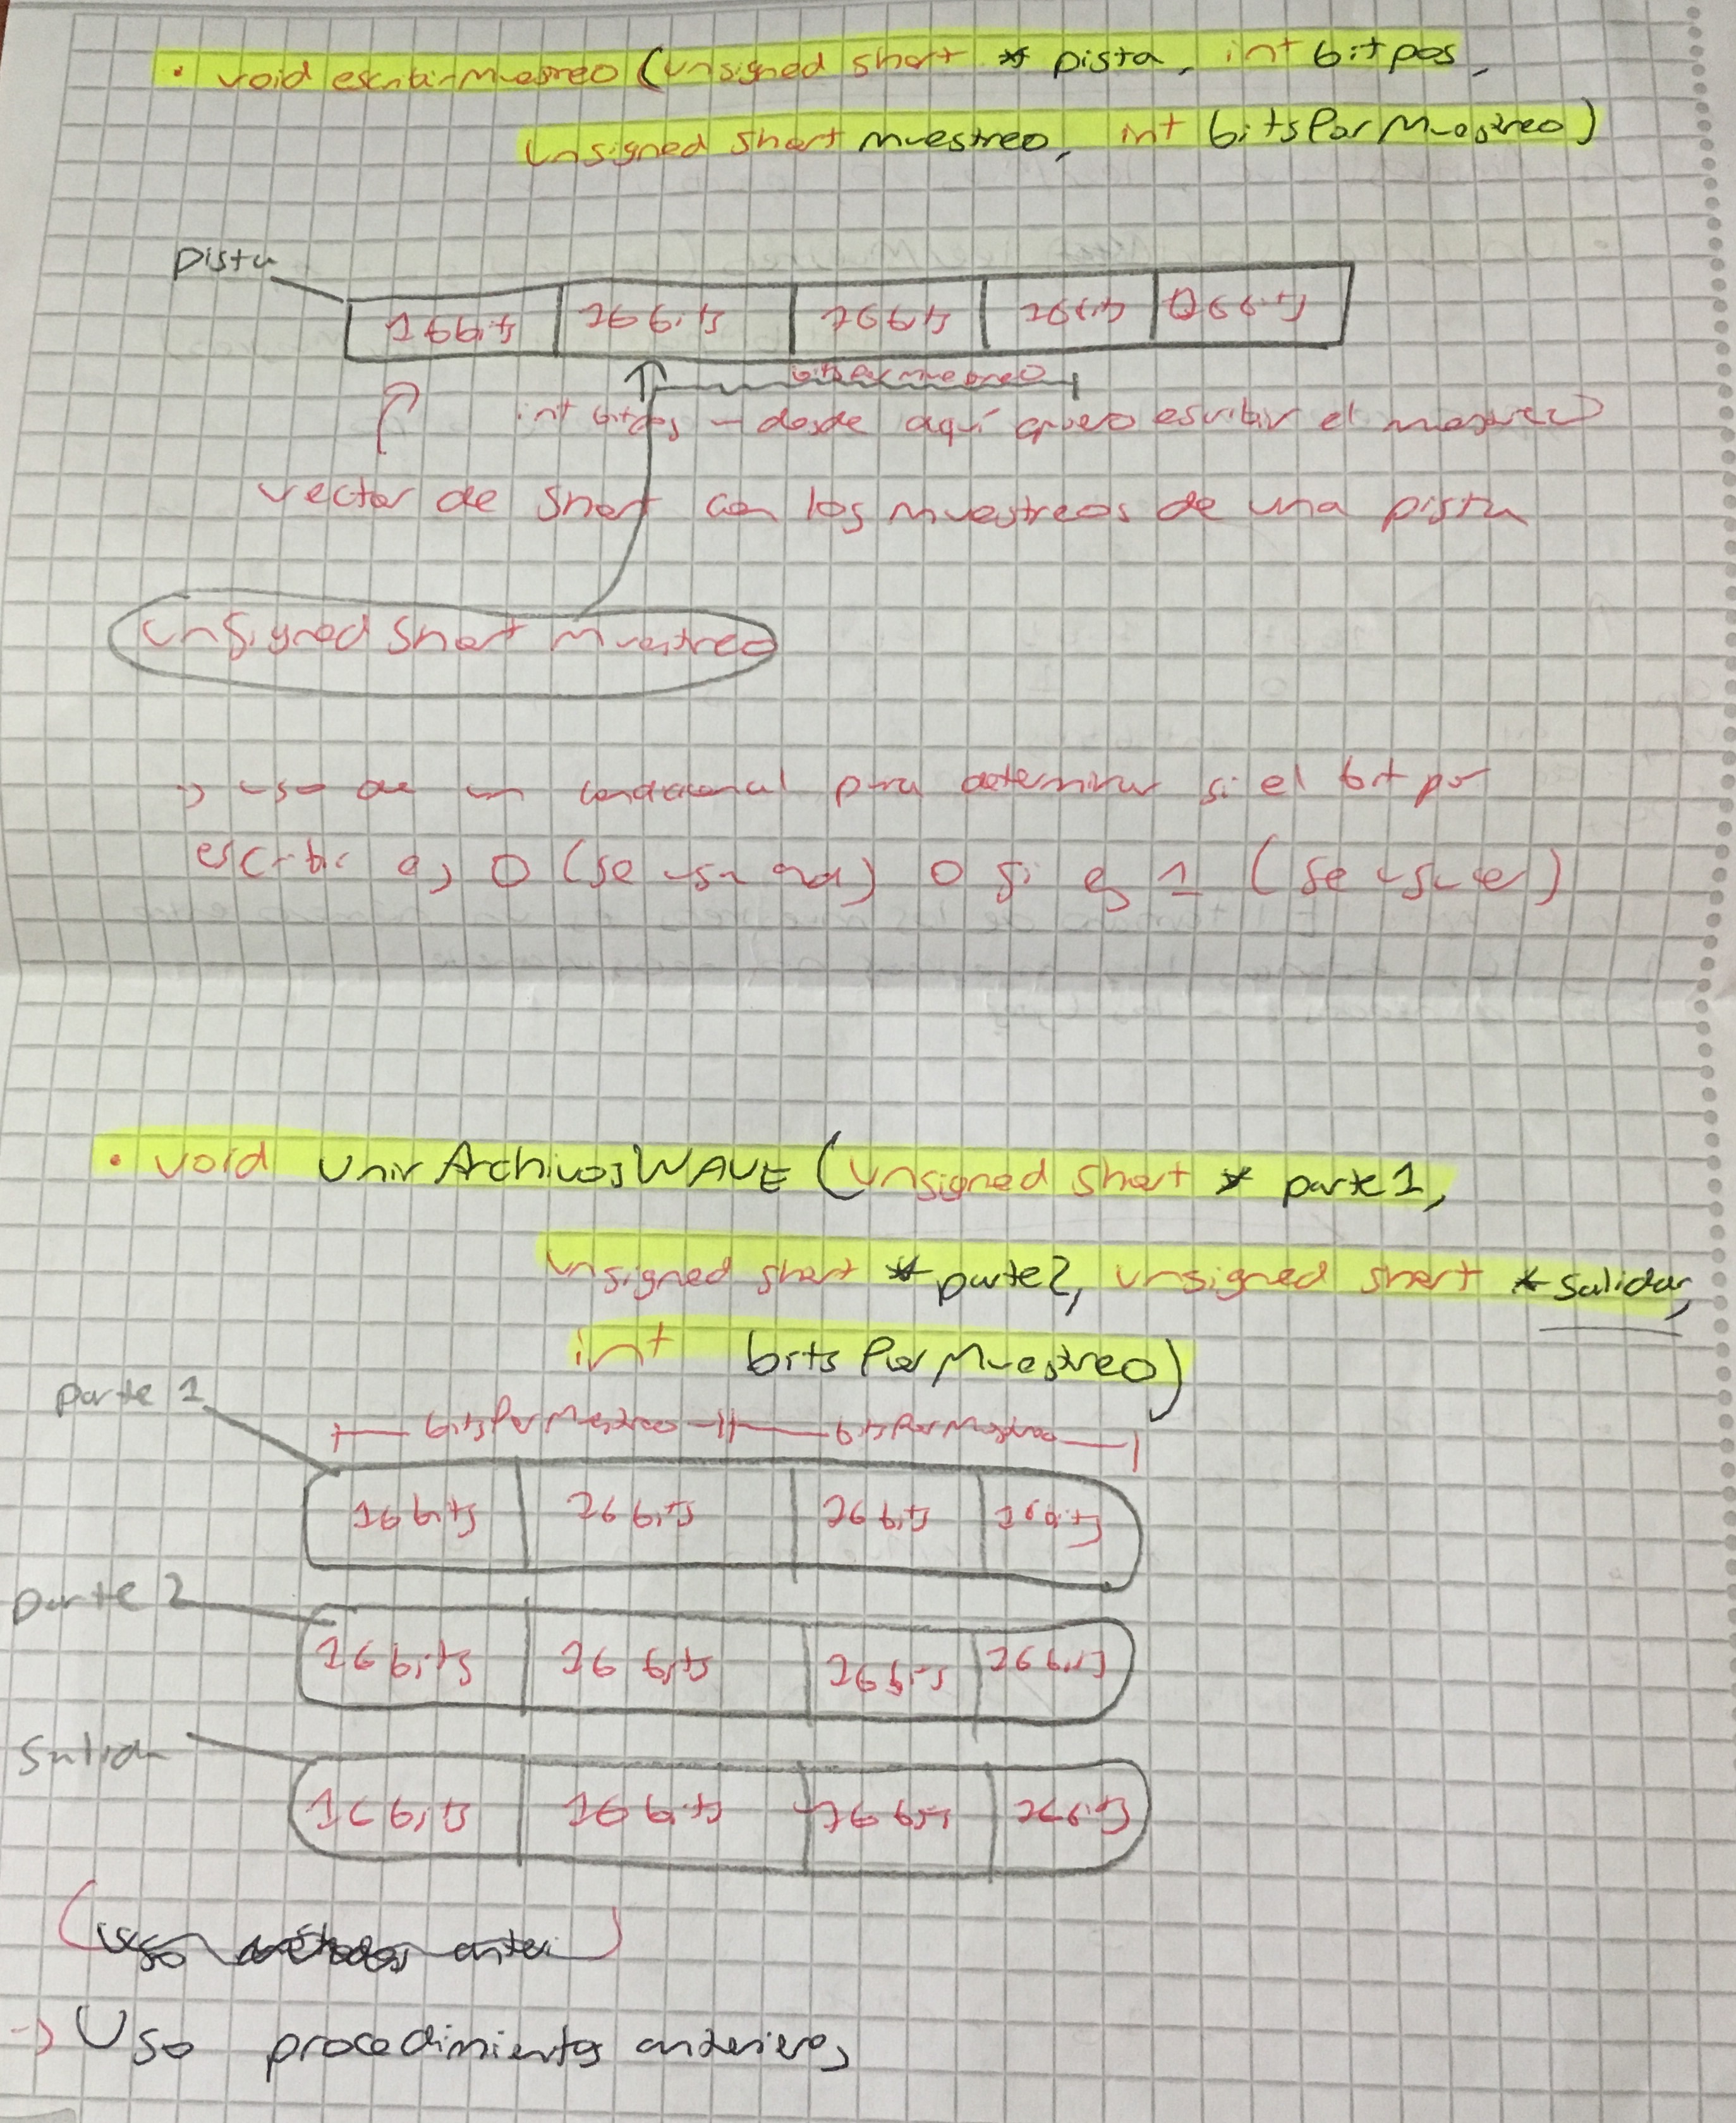 • void escribirMuestreo (unsigned short * pista, int bitpos,
unsigned short muestreo, int bitsPorMuestreo)
pista
16 bits 16 bits 16 bits 16 bits 16 bits
bitsPorMuestreo
int bitpos → desde aquí quiero escribir el muestreo
vector de short con los muestreos de una pista
unsigned short muestreo
→ uso de un condicional para determinar si el bit por
escribir es 0 (se usa and) o si es 1 (se usa er)
• void UnirArchivosWAVE (unsigned short * parte1,
unsigned short * parte2, unsigned short * salida,
int bitsPorMuestreo)
parte 1
bitsPorMuestreo bitsPorMuestreo
16 bits 16 bits 16 bits 16 bits
parte 2
16 bits 16 bits 16 bits 16 bits
Salida
16 bits 16 bits 16 bits 16 bits
(Uso métodos anter)
→ Uso procedimientos anteriores